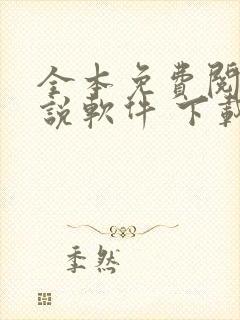 全本免費閱
說軟件 下載
季然